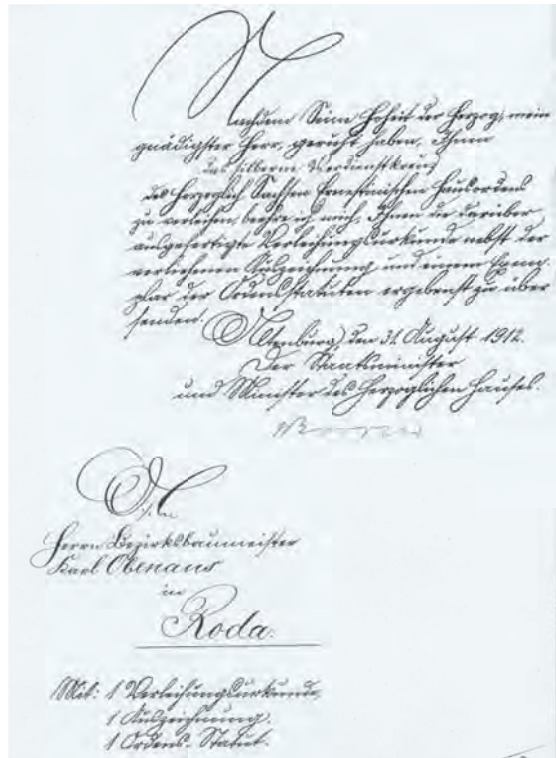 Nachdem Seine Hoheit der Herzog, mein
gnädigster Herr, geruht haben, Ihnen
das silberne Verdienstkreuz
des Herzoglich Sachsen Ernestinischen Hausordens
zu verleihen, beehre ich mich, Ihnen die darüber
ausgefertigte Verleihungsurkunde nebst der
verliehenen Auszeichnung und einem Exem-
plar der Ordensstatuten ergebenst zu über
senden.
Altenburg, den 31. August 1912.
Der Staatsminister
und Minister des Herzoglichen Hauses.
An
Herrn Bezirksbaumeister
Karl Obenaus
in
Roda.
Mit: 1 Verleihungsurkunde,
1 Auszeichnung,
1 Ordens-Statut.